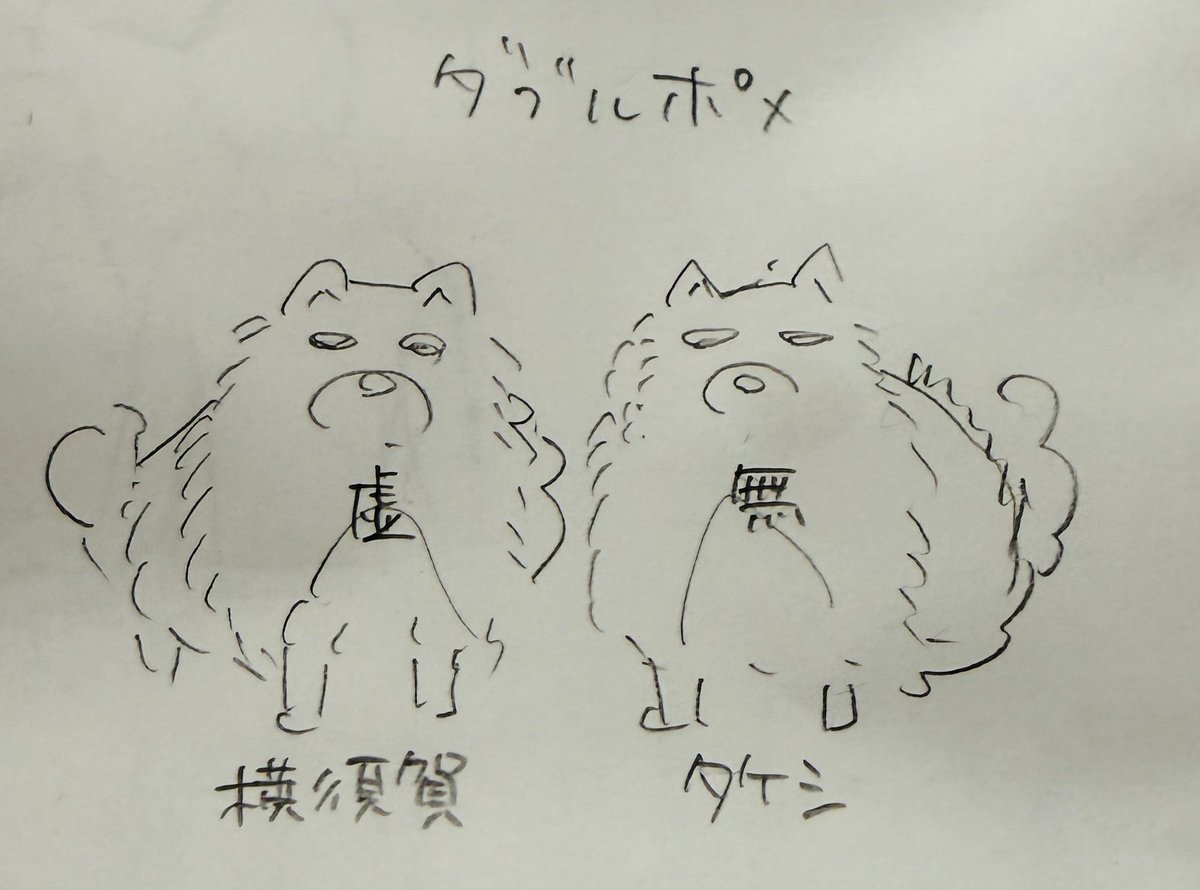 ダブルポメ
虚
無
横須賀
タケシ